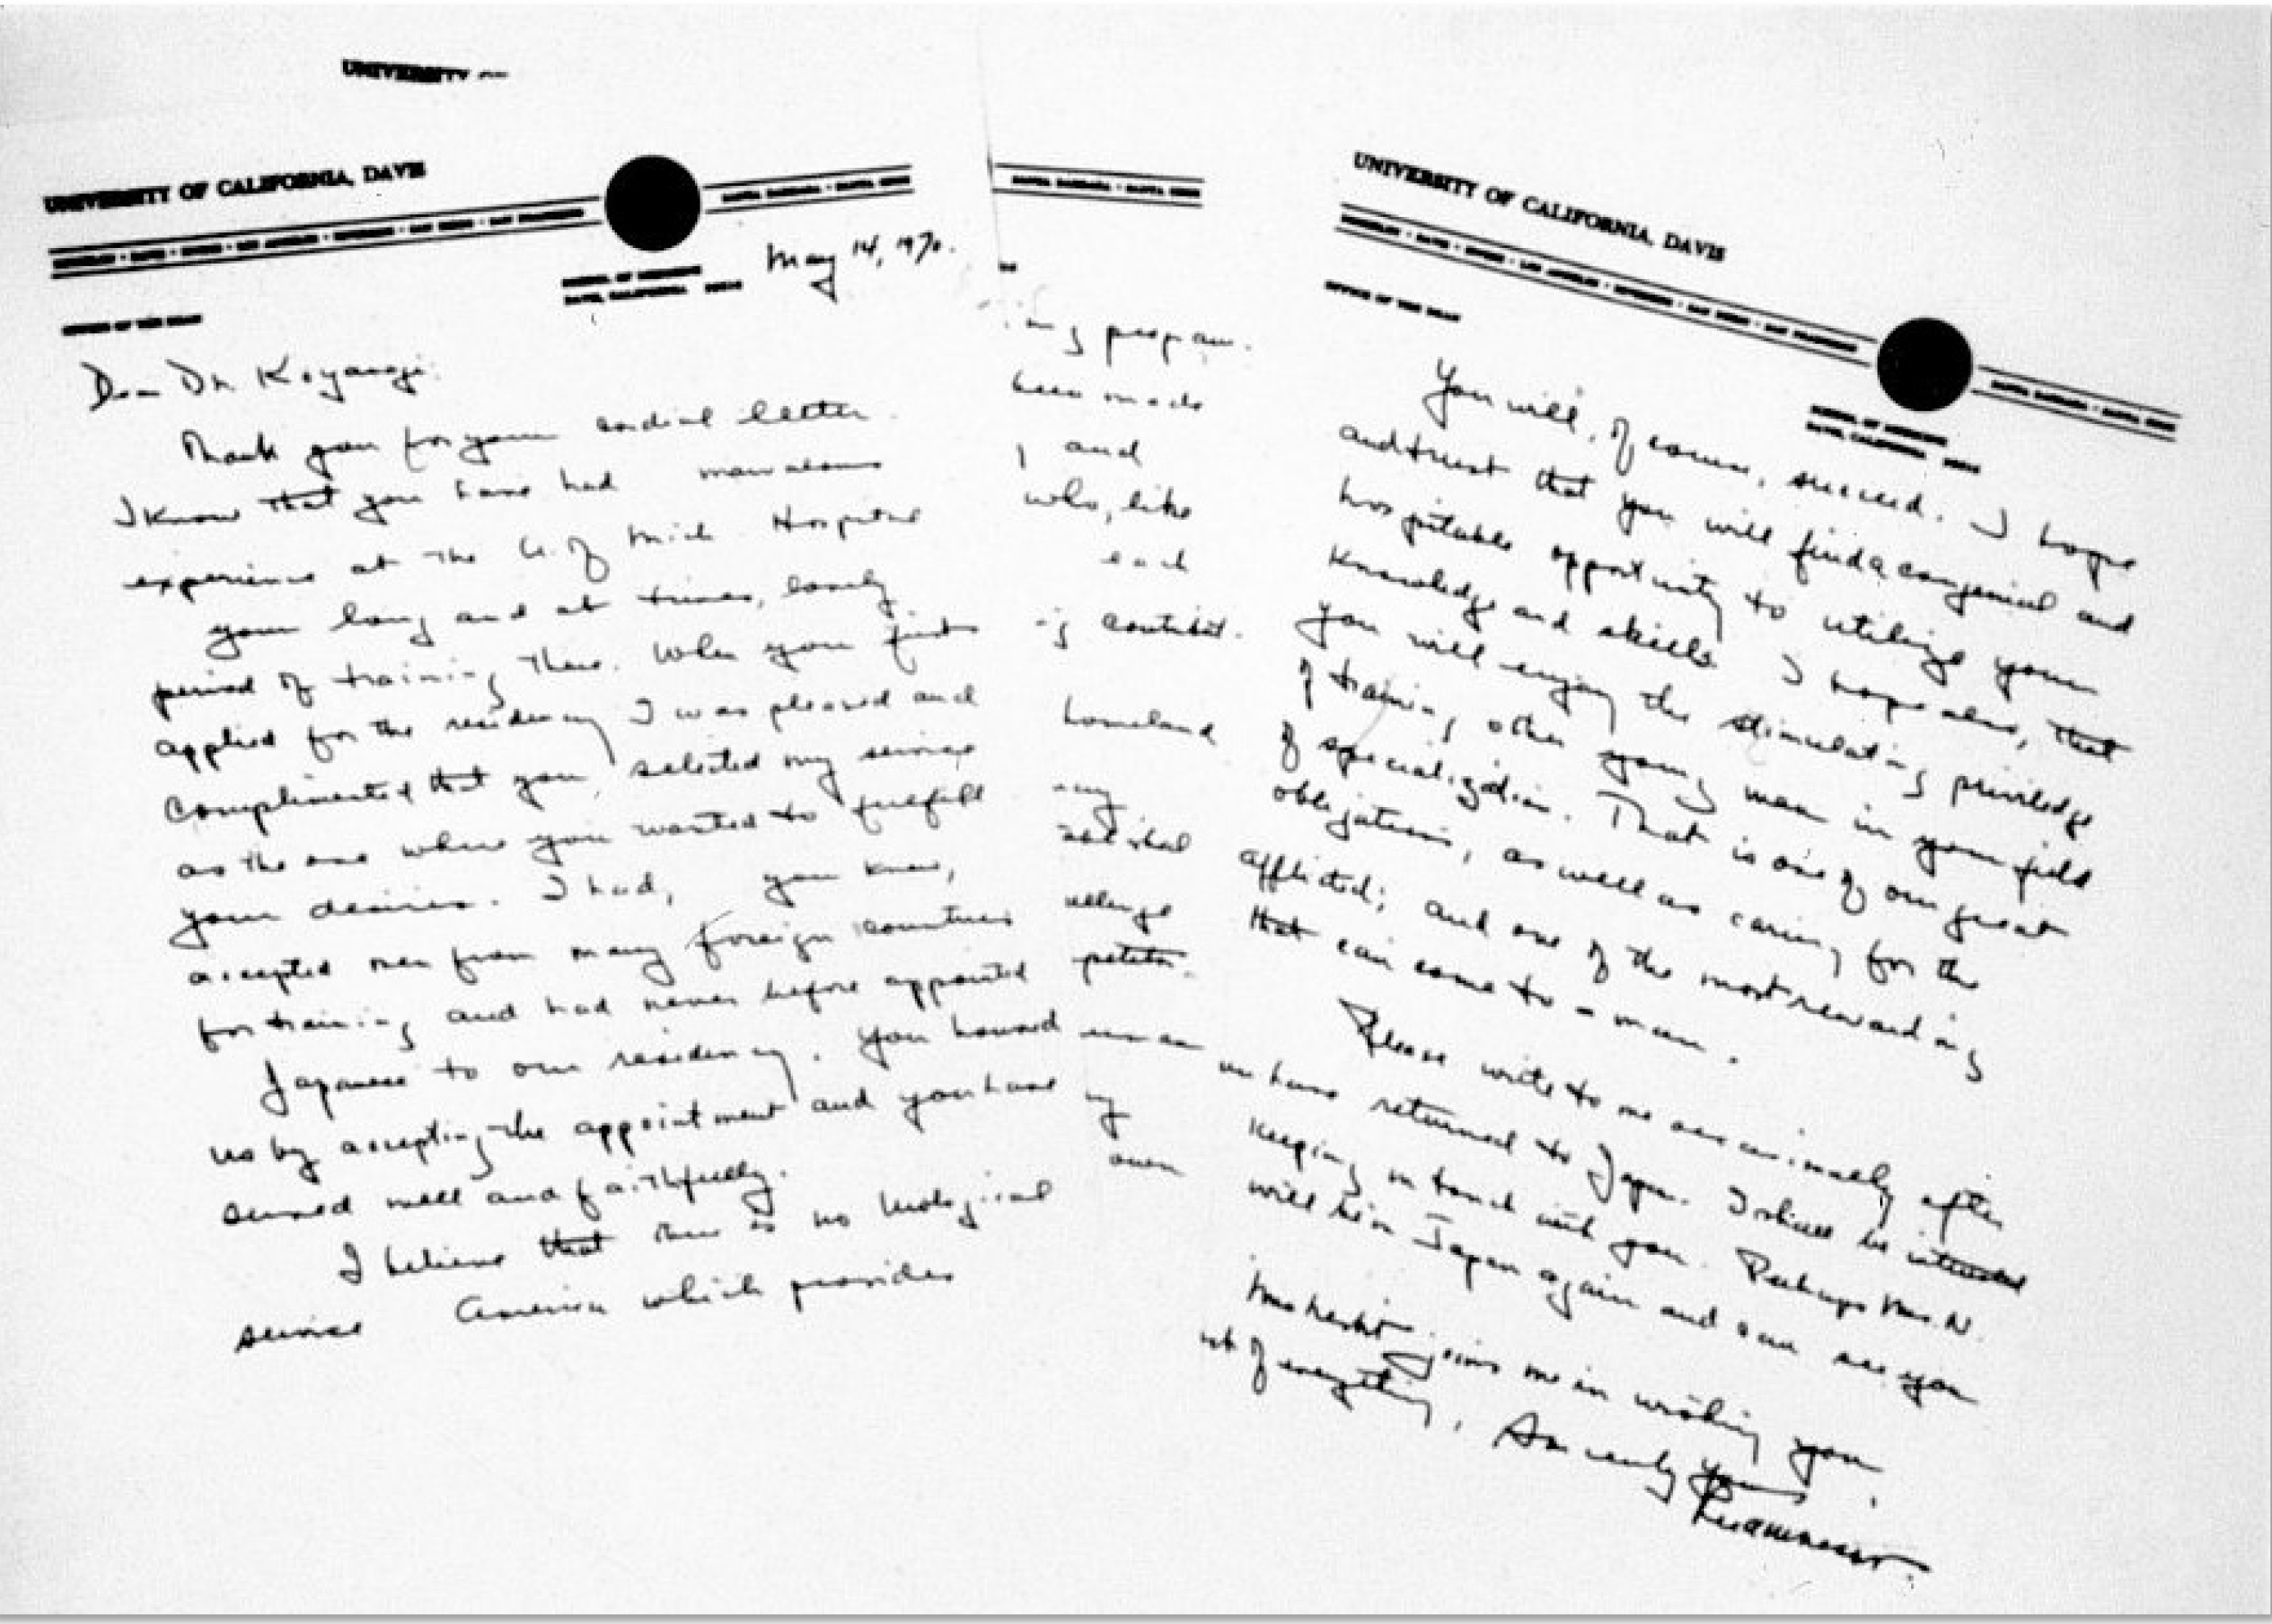 UNIVERSITY
UNIVERSITY OF CALIFORNIA, DAVIS
BERKELEY · DAVIS · IRVINE · LOS ANGELES · RIVERSIDE · SAN DIEGO · SAN FRANCISCO
SANTA BARBARA · SANTA CRUZ
SCHOOL OF MEDICINE
DAVIS, CALIFORNIA
OFFICE OF THE DEAN
May 14, 1970.
Dear Dr. Koyanagi:
Thank you for your cordial letter.
I know that you have had marvelous
experience at the U. of Mich. Hospital
your long and at times, lonely
period of training there. When you first
applied for the residency I was pleased and
complimented that you selected my service
as the one where you wanted to fulfill
your desires. I had, you know,
accepted men from many foreign countries
for training and had never before appointed
Japanese to our residency. You honored
us by accepting the appointment and you have
served well and faithfully.
I believe that there is no urological
service America which provides
SANTA BARBARA · SANTA CRUZ
ing program.
been made
and
who, like
each
contribut.
homeland
own
UNIVERSITY OF CALIFORNIA, DAVIS
BERKELEY · DAVIS · IRVINE · LOS ANGELES · RIVERSIDE · SAN DIEGO · SAN FRANCISCO
SANTA BARBARA · SANTA CRUZ
SCHOOL OF MEDICINE
DAVIS, CALIFORNIA
OFFICE OF THE DEAN
You will, of course, succeed. I hope
and trust that you will find a congenial and
hospitable opportunity to utilize your
knowledge and skills. I hope also, that
you will enjoy the stimulating priviledge
of training other young men in your field
of specialization. That is one of our great
obligations, as well as caring for the
afflicted; and one of the most rewarding
that can come to a man.
Please write to me occasionally after
have returned to Japan. I shall be interested
keeping in touch with you. Perhaps Mrs. N.
will be in Japan again and can see you
Mrs Nesbit joins me in wishing you
of everything,
Sincerely yours,